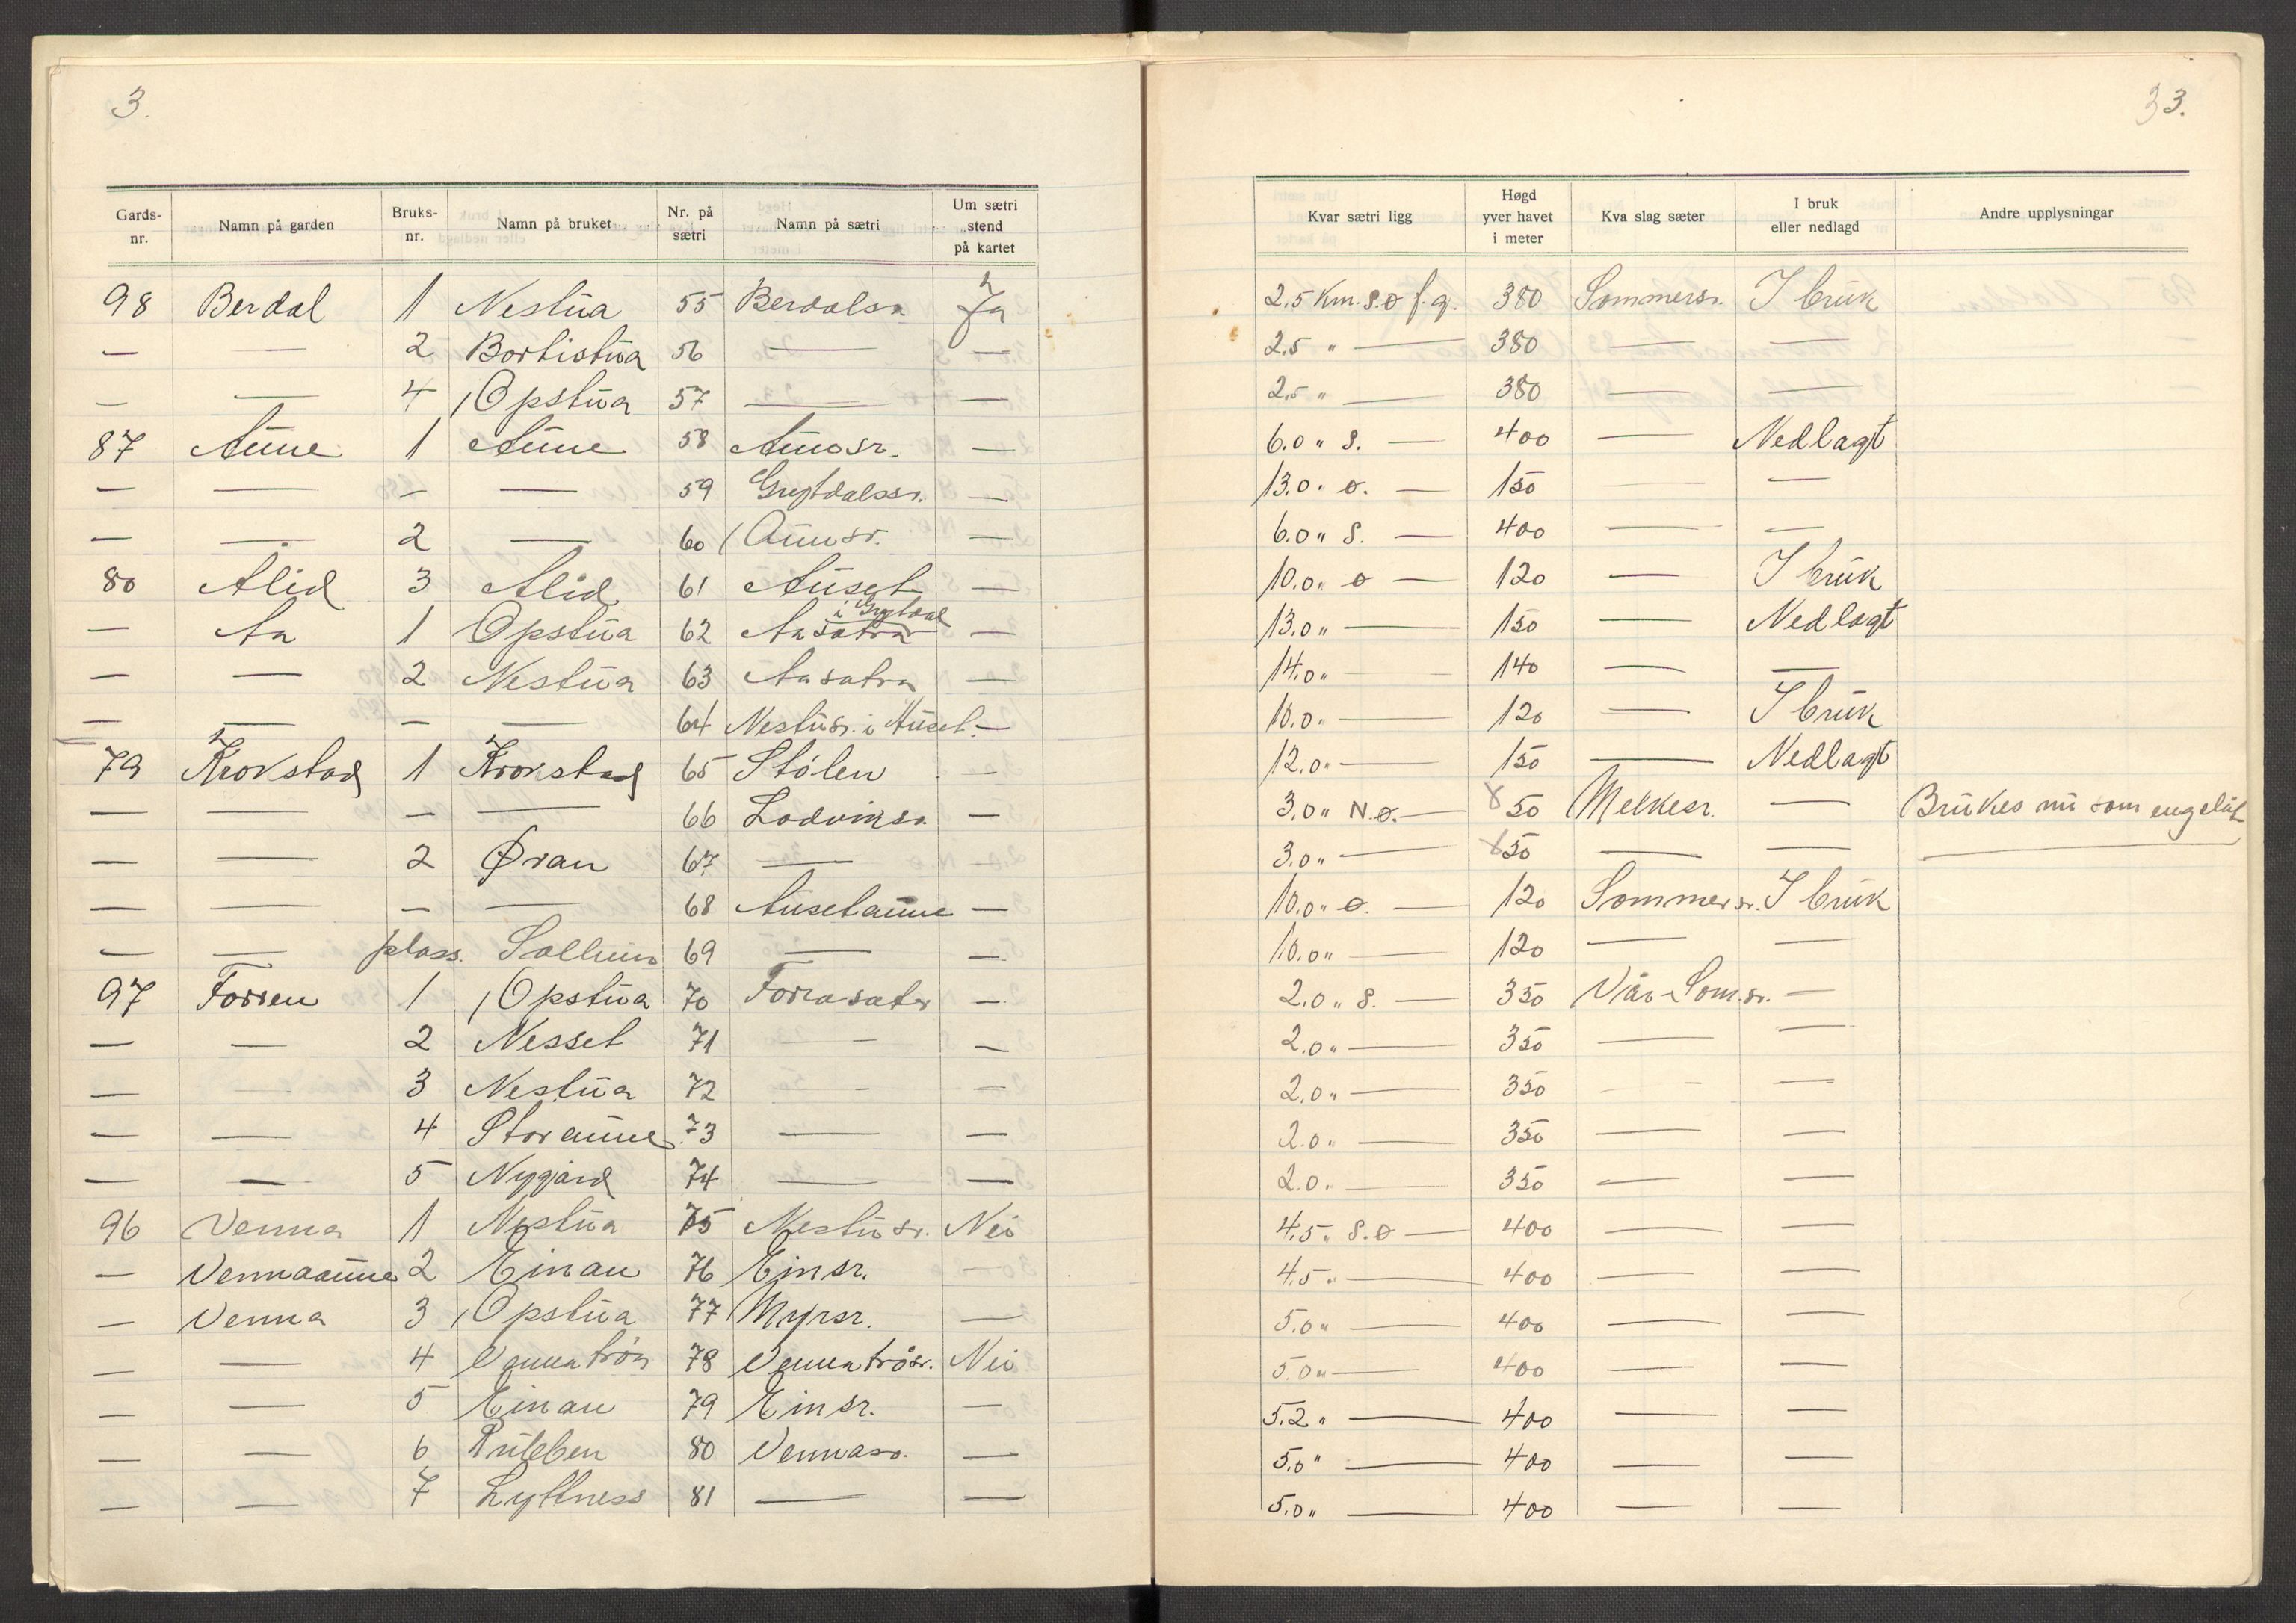 3.
33.
Gards-nr. Namn på garden Bruks-nr. Namn på bruket Nr. på sætri Namn på sætri Um sætri stend på kartet Kvar sætri ligg Høgd yver havet i meter Kva slag sæter I bruk eller nedlagd Andre upplysningar
98 Berdal 1 Nestua 55 Berdalsr. Ja 2.5 Km. s.ø f.g. 380 Sommersr. I bruk
— — 2 Bortistua 56 — — 2.5 " — 380 — —
— — 4 Opstua 57 — — 2.5 " — 380 — —
87 Aune 1 Aune 58 Aunosr. — 6.0 " S. — 400 — Nedlagt
— — — — 59 Grytdalssr. — 13.0 " ø. — 150 — —
— — 2 — 60 Aunsr. — 6.0 " S. — 400 — —
80 Alid 3 Alid 61 Auset — 10.0 " ø — 120 — I bruk
— Aa 1 Opstua 62 Aasatra i Grytdal — 13.0 " — 150 — Nedlagt
— — 2 Nestua 63 Aasatra — 14.0 " — 140 — —
— — — — 64 Nestusr. i Auset. — 10.0 " — 120 — I bruk
79 Krokstad 1 Krokstad 65 Stölen — 12.0 " — 150 — Nedlagt
— — — — 66 Lodviksr. — 3.0 " N.ø. — 50 Melkesr. — Brukes nu som engslåt
— — 2 Øran 67 — 3.0 " — 50 — —
— — — — 68 Ausetaune — 10.0 " ø. — 120 Sommersr. I bruk
— — plass. Sollum 69 — — 10.0 " — 120 — —
97 Forren 1 Opstua 70 Forrasater — 2.0 " S. — 350 Vår-Som.sr. —
— — 2 Nesset 71 — — 2.0 " — 350 — —
— — 3 Nestua 72 — — 2.0 " — 350 — —
— — 4 Storaune 73 — — 2.0 " — 350 — —
— — 5 Nygård 74 — — 2.0 " — 350 — —
96 Venna 1 Nestua 75 Nestusr. Nei 4.5 " S.ø — 400 — —
— Vennaaune 2 Einan 76 Einsr. — 4.5 " — 400 — —
— Venna 3 Opstua 77 Myrsr. — 5.0 " — 400 — —
— — 4 Vennatrön 78 Vennatrösr. Nei 5.0 " — 400 — —
— — 5 Einan 79 Einsr. — 5.2 " — 400 — —
— — 6 80 Vennasr. — 5.0 " — 400 — —
— — 7 Lyttness 81 — — 5.0 " — 400 — —